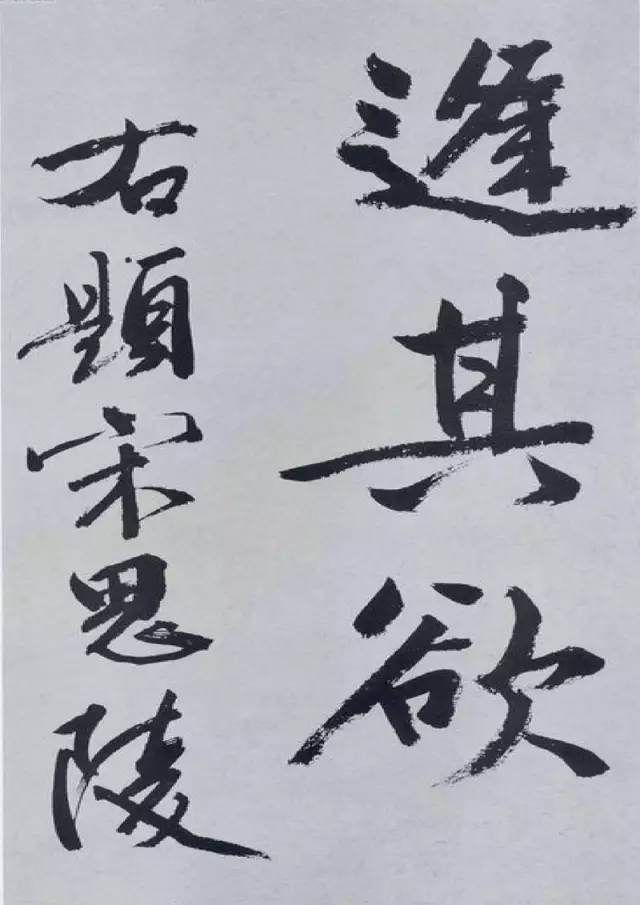 逢其欲
右題宋思陵